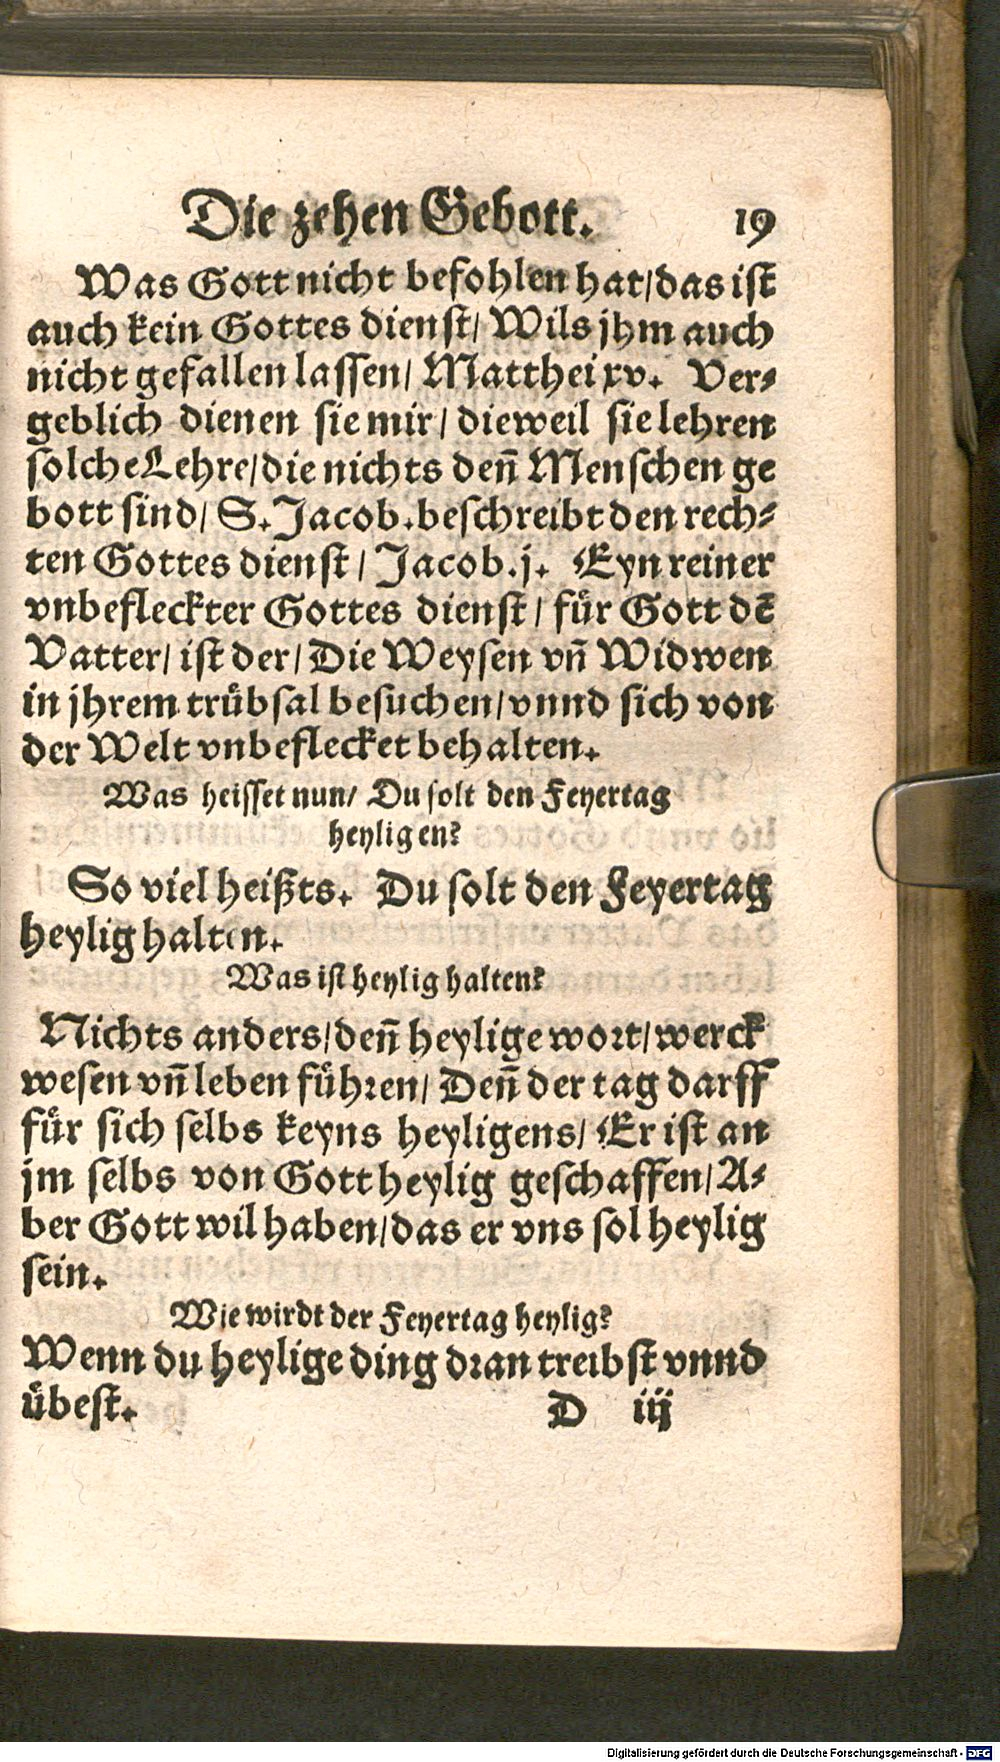 Die zehen Gebott. 19
Was Gott nicht befohlen hat/das ist
auch kein Gottes dienst/ Wils jhm auch
nicht gefallen lassen/ Matthei xv. Ver⸗
geblich dienen sie mir/ dieweil sie lehren
solche Lehre/die nichts deñ Menschen ge
bott sind/ S. Jacob. beschreibt den rech⸗
ten Gottes dienst/ Jacob. j. Eyn reiner
vnbefleckter Gottes dienst/ fuͤr Gott dē
Vatter/ ist der/ Die Weysen vñ Widwen
in jhrem truͤbsal besuchen/ vnnd sich von
der Welt vnbeflecket behalten.
Was heisset nun/ Du solt den Feyertag
heyligen?
So viel heißts. Du solt den Feyertag
heylig halten.
Was ist heylig halten?
Nichts anders/deñ heylige wort/werck
wesen vñ leben fuͤhren/ Deñ der tag darff
fuͤr sich selbs keyns heyligens/ Er ist an
jm selbs von Gott heylig geschaffen/ A⸗
ber Gott wil haben/das er vns sol heylig
sein.
Wie wirdt der Feyertag heylig?
Wenn du heylige ding dran treibst vnnd
uͤbest. D iij
Digitalisierung gefördert durch die Deutsche Forschungsgemeinschaft - DFG